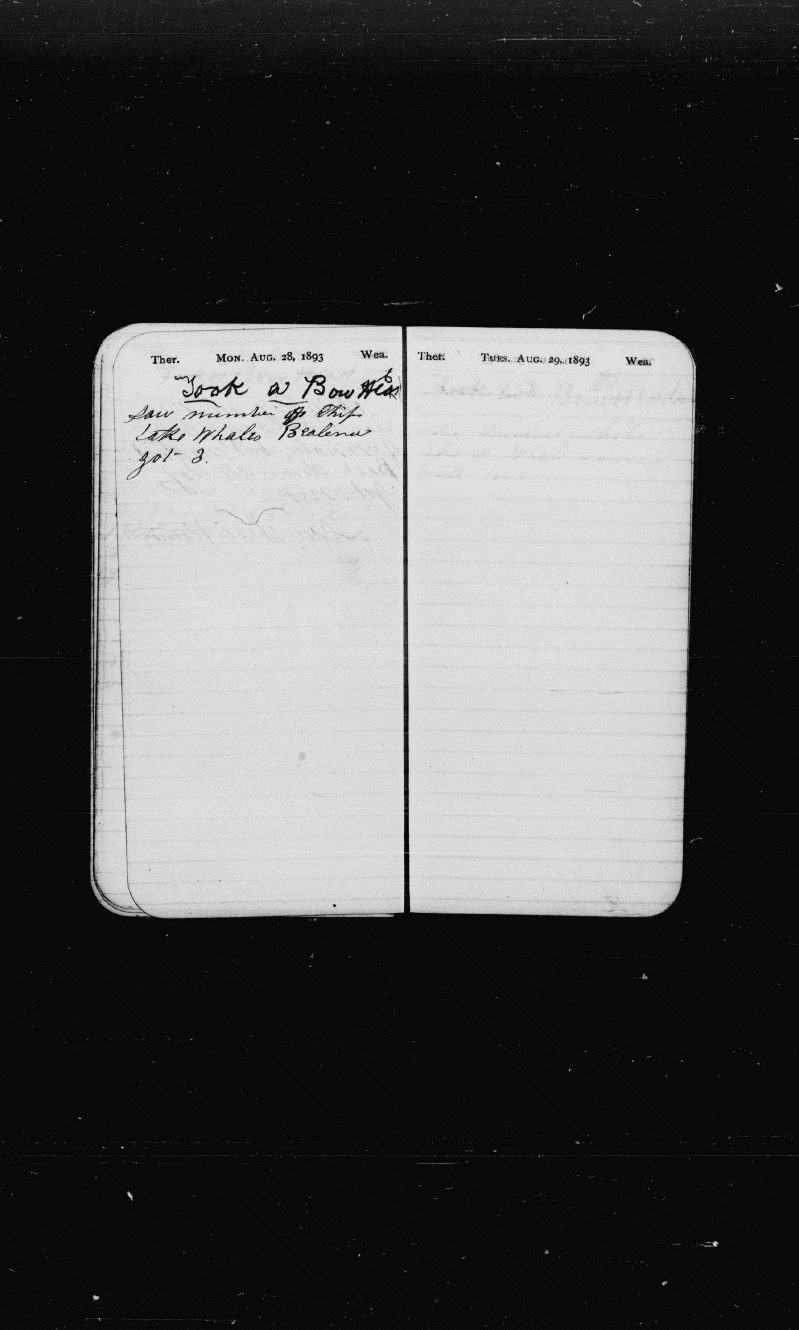 Ther. MON. AUG. 28, 1893 Wea.
Took a Bow Head
Saw number of Ship
take Whales Bealena
got 3.
Ther. TUES. AUG. 29, 1893 Wea.